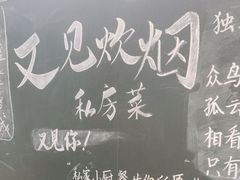 又见炊烟
私房菜
又见你！
"私家小厨
独
众鸟
孤云
相看
只有